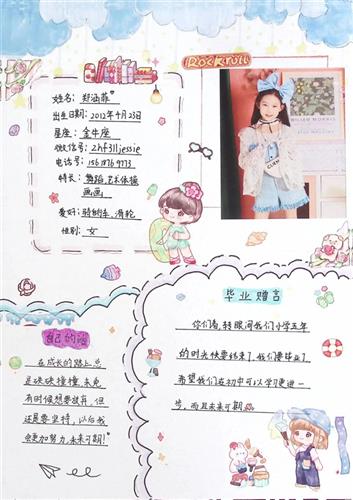 Rockroll
姓名：郑涵菲
出生日期：2012年4月23日
星座：金牛座
微信号：Zhf311jessie
电话号：
特长：舞蹈、艺术体操
画画
爱好：骑的车、滑轮
性别：女
WILLIAM MORRIS
毕业赠言
你们看，转眼间我们小学五年
的时光快要结束了，我们要毕业了
希望我们在初中可以学习更进一
步，而且未来可期。
自己的话
在成长的路上，总
是跌跌撞撞，未免
有时候想要放弃，但
还是要坚持，以后我
会更加努力，未来可期！